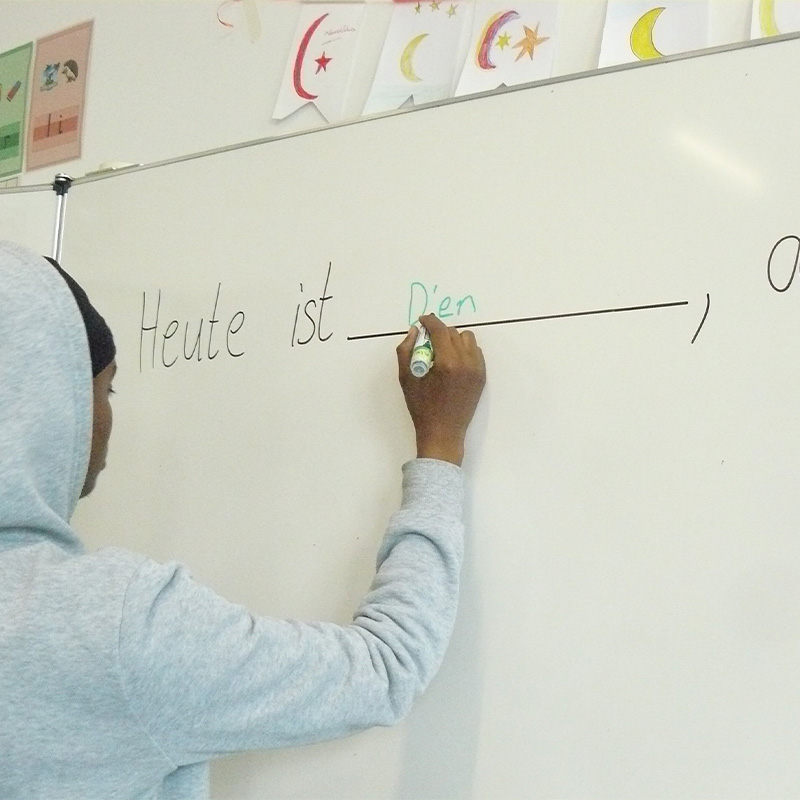 Heute ist Dien,
li